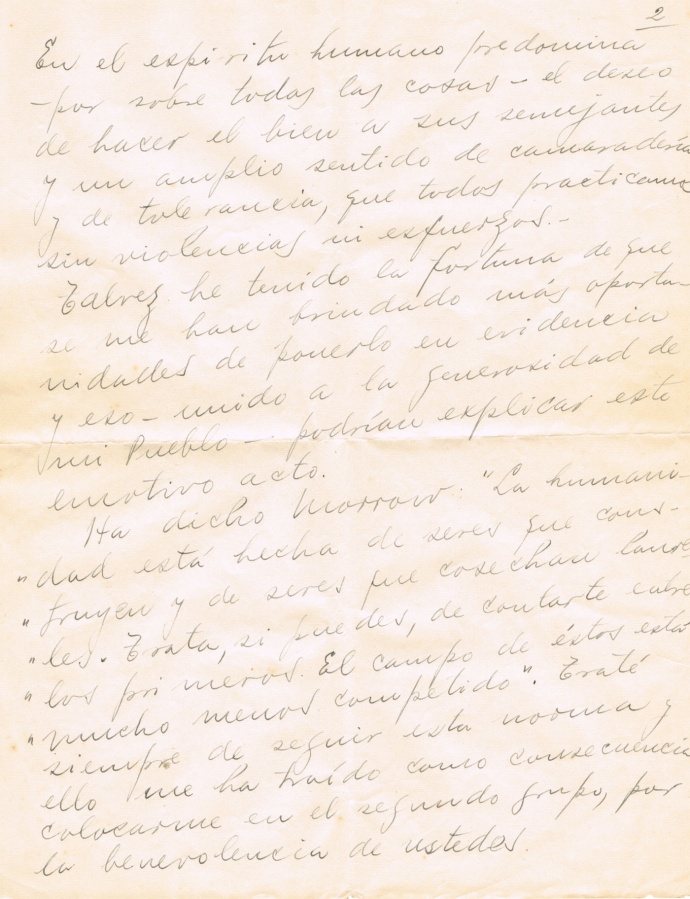 2
En el espíritu humano predomina
- por sobre todas las cosas - el deseo
de hacer el bien a sus semejantes
y un amplio sentido de camaradería
y de tolerancia, que todos practicamos
sin violencias ni esfuerzos.-
Talvez he tenido la fortuna de que
se me han brindado más oportu-
nidades de ponerlo en evidencia
y eso - unido a la generosidad de
mi Pueblo - podrían explicar este
emotivo acto.
Ha dicho Morrow: "La humani-
"dad está hecha de seres que cons-
"truyen y de seres que cosechan laure-
"les. Trata, si puedes, de contarte entre
"los primeros. El campo de éstos está
"mucho menos competido". Traté
siempre de seguir esta norma y
ello me ha traído como consecuencia
colocarme en el segundo grupo, por
la benevolencia de ustedes.